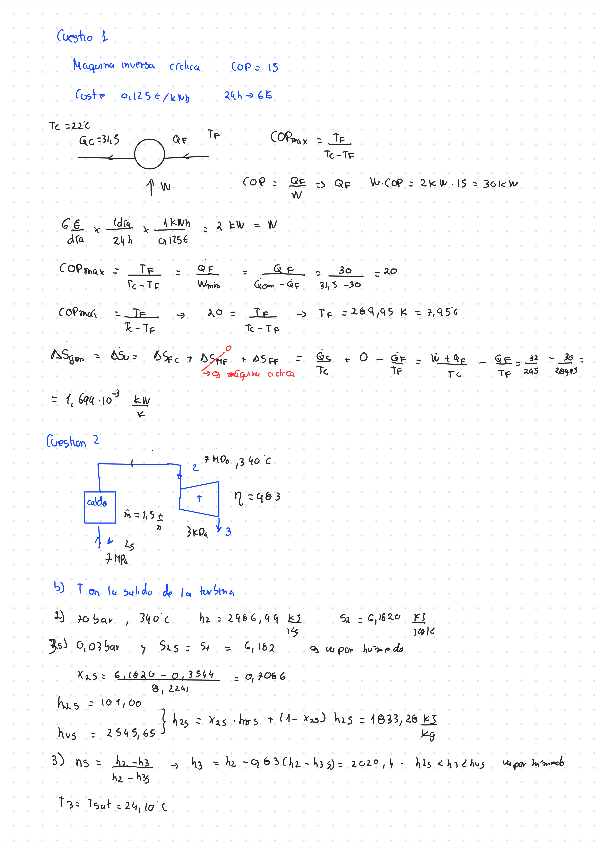 Cuestio 1
Maquina inversa cíclica COP = 15
Coste 0,125 €/kWh 24h → 6€
Tc = 22°C
Qc = 31,5 QF TF COPmax = TF / (Tc - TF)
↑ W COP = QF / W ⇒ QF W·COP = 2kW·15 = 30kW
6 € / día × 1día / 24h × 1kWh / 0,125€ = 2 kW = W
COPmax = TF / (Tc - TF) = QF / Wmin = QF / (Qcm - QF) = 30 / (31,5 - 30) = 20
= TF / (Tc - TF) → 20 = TF / (Tc - TF) → TF =
ΔSgen = ΔSu = ΔSFC + ΔSMF + ΔSFF = Qc / Tc + 0 - QF / TF = (W + QF) / Tc - QF / TF = 32 / 295 - 30 =
0
máquina cíclica
= 1,694·10⁻³ kW / K
Cuestion 2
2 7 MPa, 340°C
caldo T η = 0,83
ṁ = 1,5
3 kPa 3
1 2s
7 MPa
b) T en la salida de la turbina
2) 70 bar, 340°C h2 = 2986,99 kJ / kg S2 = 6,1820 kJ / kgK
3s) 0,03 bar y S2s = S1 = 6,182 vapor humedo
X2s = (6,1820 - 0,3544) / 8,2241 = 0,7086
hL2s = 101,00
hvs = 2545,65 } h2s = x2s · hvs + (1 - x2s) h2s = 1833,28 kJ / kg
3) ηs = (h2 - h3) / (h2 - h3s) → h3 = h2 - 0,83 (h2 - h3s) = 2020,4 · hls < h3 < hvs vapor humedo
T3 = Tsat = 24,10°C